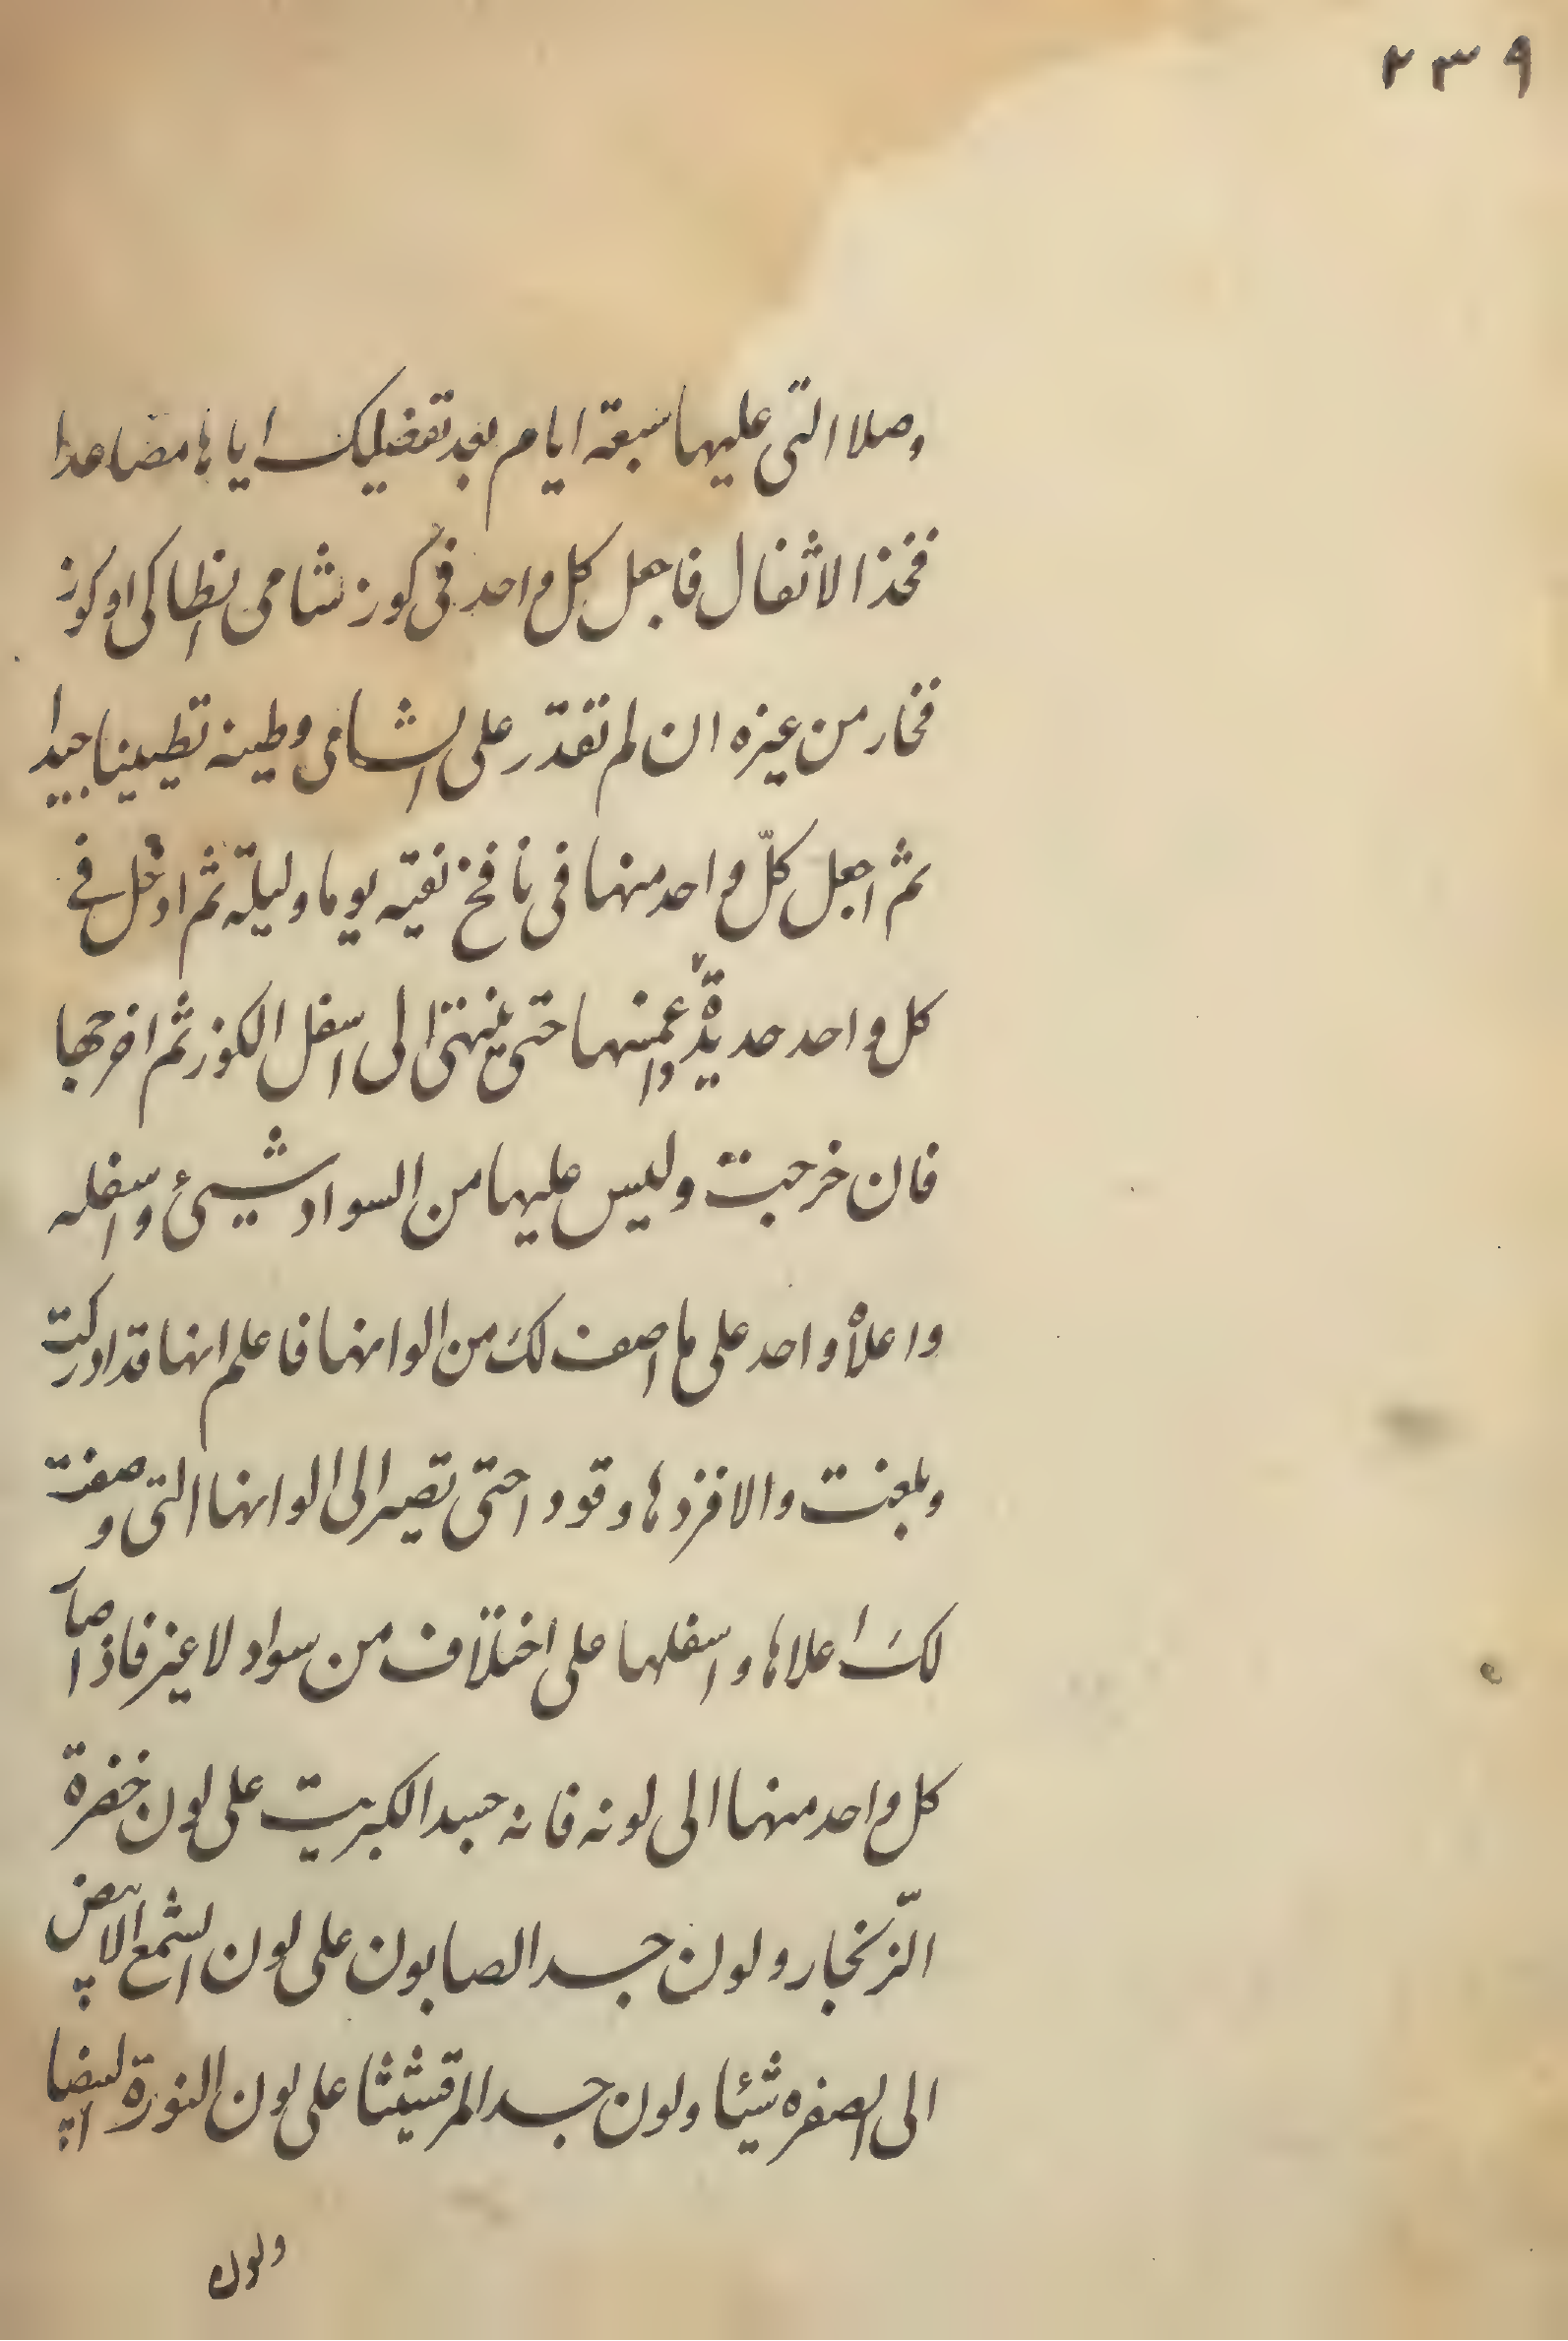 ٢٣٩
وصلا التى عليها سبعة ايام بعد تفضيلك اياها مصاعدا
فخذ الاثفال فاجعل كل واحد فى كوز شامى انطاكى او كوز
فخار من غيره ان لم تقدر على الشامى وطينه تطيينا جيدا
ثم اجعل كلّ واحد منها فى نافخ نقيه يوما وليلة ثم ادخل فى
كل واحد حديدة واغمنها حتى ينتهى الى اسفل الكوز ثم اخرجها
فان خرجت وليس عليها من السواد شيئ واسفله
واعلاه واحد على ما اصف لك من الوانها فاعلم انها قد ادركت
وبلغت والا فزدها وقودا حتى تصير الى الوانها التى وصفت
لك اعلاها واسفلها على اختلاف من سواد لا غير فاذا صار
كل واحد منها الى لونه فانه جسد الكبريت على لون خضرة
الزّنجار ولون جسد الصابون على لون الشمع الابيض
الى الصفره شيئا ولون جسد المرقشيثا على لون النورة البيضا
ولون